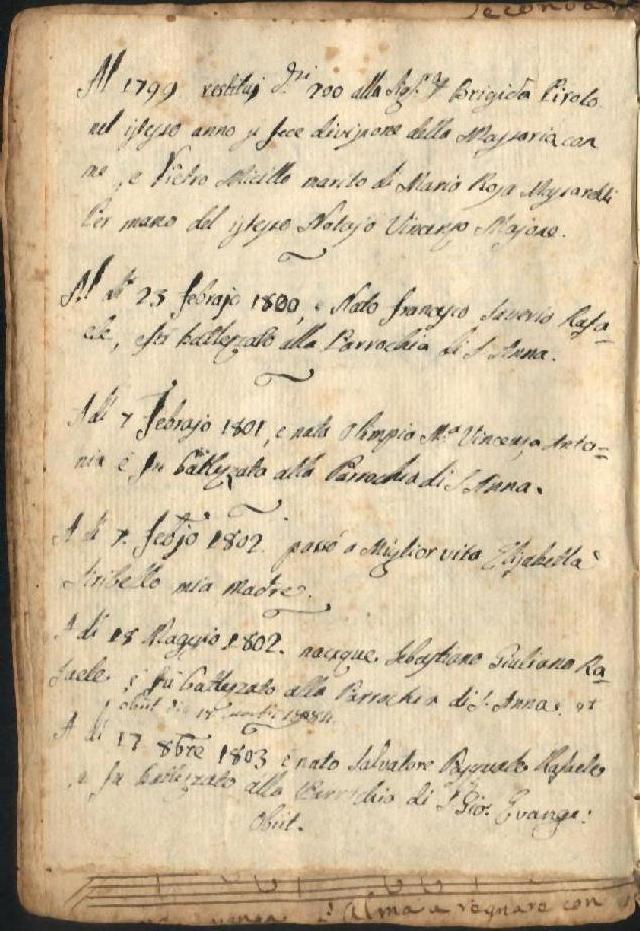 Seconda
Al 1799 restituj d.ti 200 alla Sig.ra Brigida Pirolo
nel istesso anno si fece divisione della Massaria con
me, e Pietro Micillo marito di Maria Rosa
Per mano del istesso Notajo Vincenzo Majone.
Al dì 23 febrajo 1800, è Nato Francesco Saverio Rafa=
ele, battezzato alla Parrochia di S. Anna.
A dì 7 Febrajo 1801, è nata Olimpia M.a Vincenza Anto=
nia è fu battezzata alla Parrochia di S. Anna.
A dì 7. febjo 1802. passò a Miglior vita Elisabetta
mia madre.
A dì 18 Maggio 1802. nacque Sebastiano Giuliano Ra=
faele, è fu battezzato alla Parrochia di S. Anna.
obiit die
A dì 17 8bre 1803 è nato Salvatore Pasquale Rafaele
e fu battezzato alla Parrochia di S. Gio: Evange:
Obiit.
Alma a regnare con